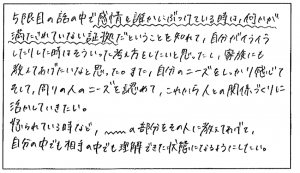 5限目の話の中で感情を誰かにぶつけている時は、何かが
満たされていない証拠だということを知れて、自分がイライラ
したりした時はそういった考え方をしたいと思ったし、家族にも
教えてあげたいなと思った。また、自分のニーズをしっかり感じて
そして、周りの人のニーズをも認めて、これから人との関係づくりに
活かしていきたい。
怒られている時など、〰〰の部分をその人に教えてあげて、
自分の中でも相手の中でも理解できた状態になるようにしたい。